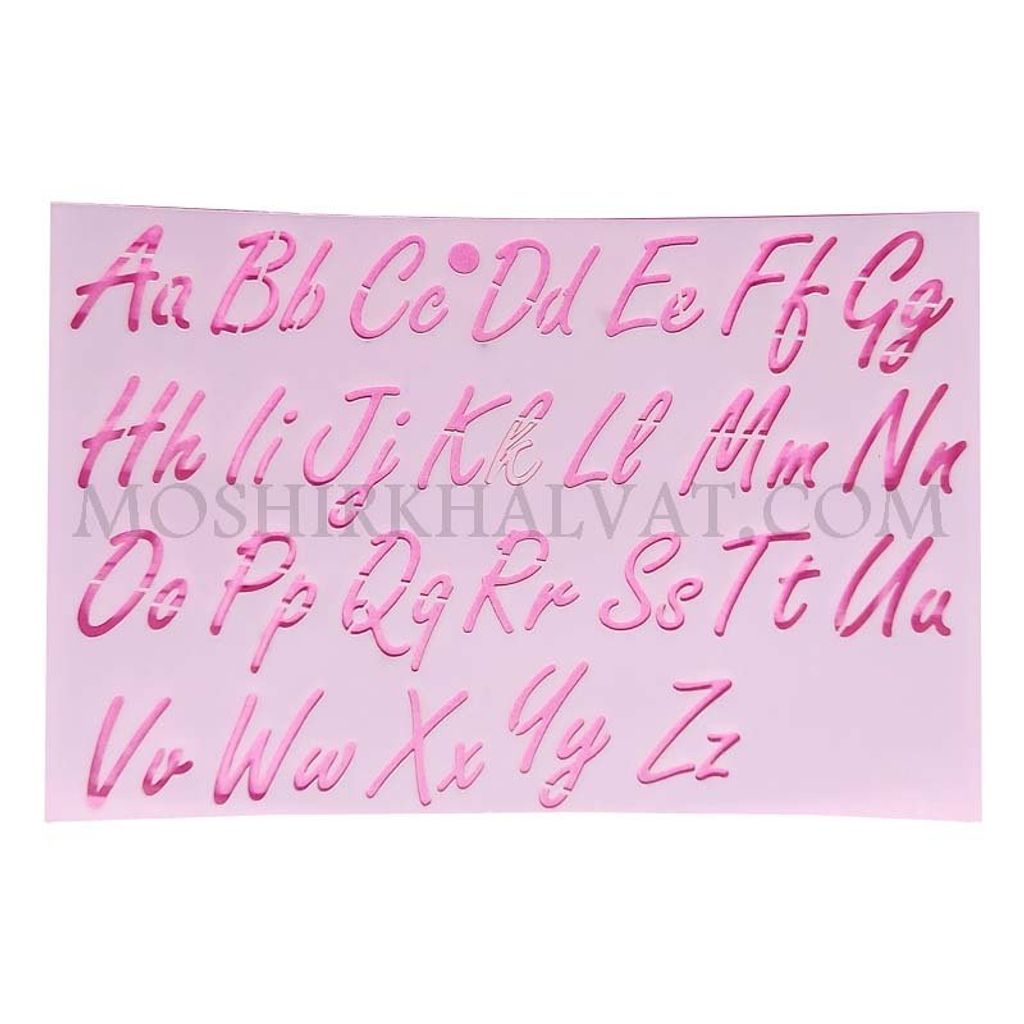 Aa Bb Cc Dd Ee Ff Gg
Hh Ii Jj Kk Ll Mm Nn
MOSHIRKHALVAT.COM
Oo Pp Qq Rr Ss Tt Uu
Vv Ww Xx Yy Zz